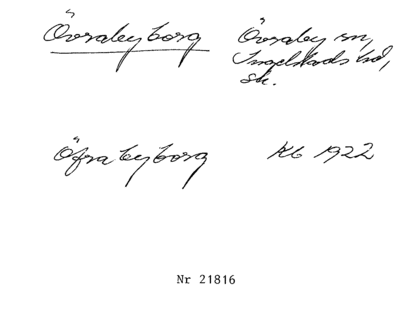 Övraby borg Övraby sn,
Ingelstads hd,
Sk.
Öfraby borg Kb 1922
Nr 21816